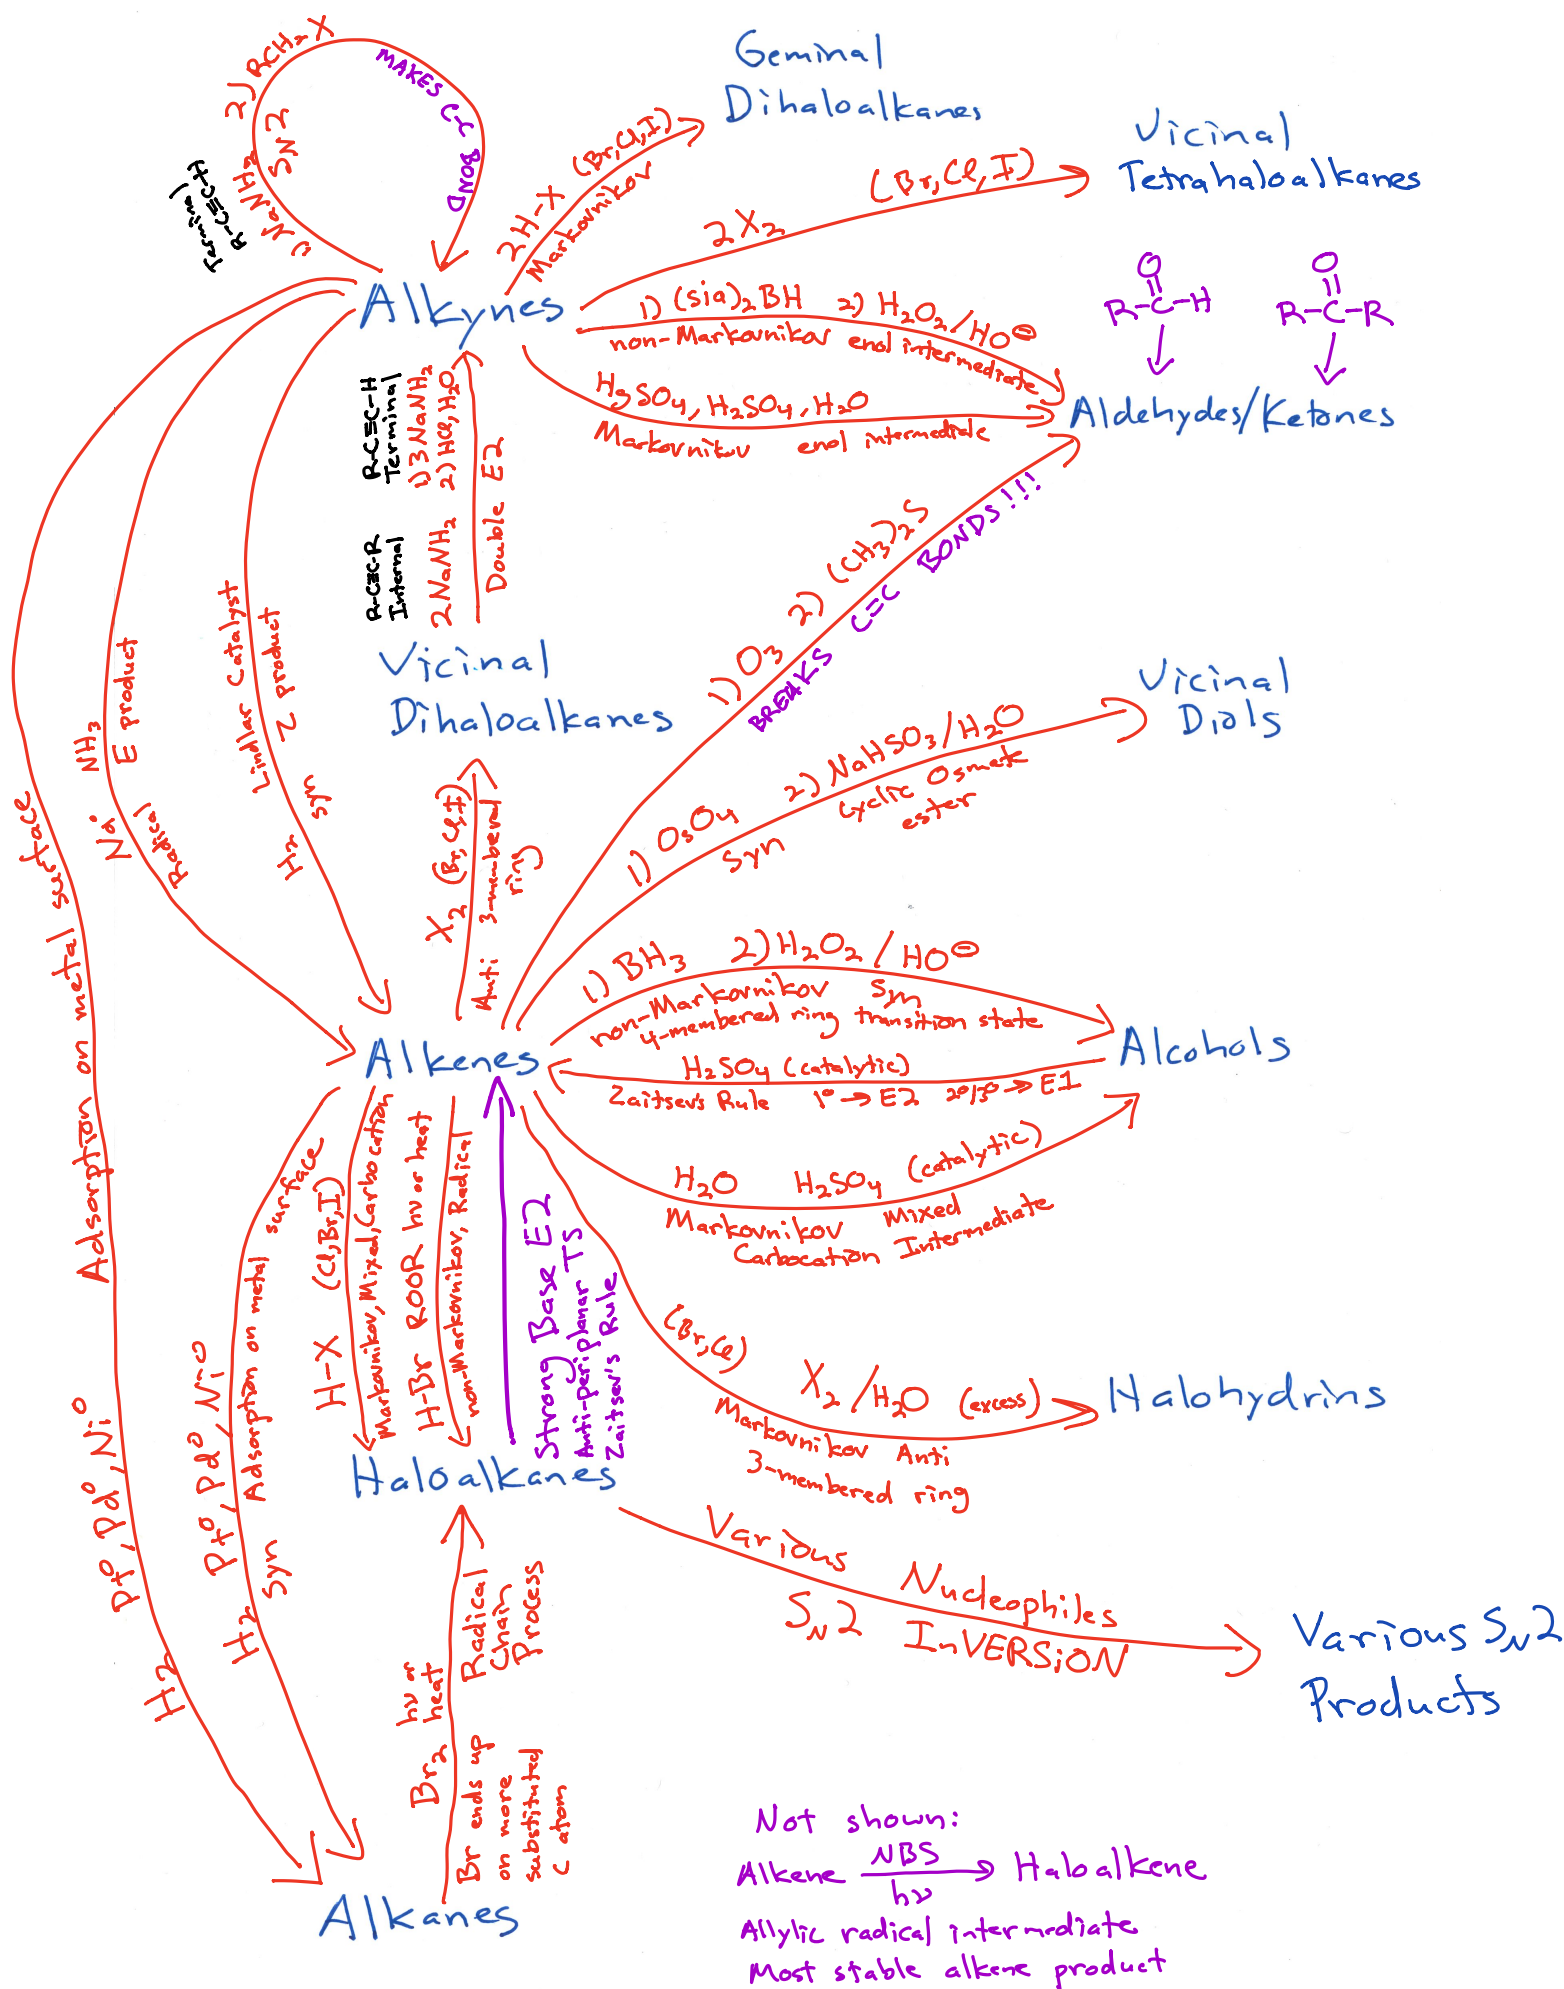 1) NaNH2 2) RCH2X
SN2
MAKES C-C BOND
Terminal
R-C≡C-H
Geminal
Dihaloalkanes
2H-X (Br,Cl,I)
Markovnikov
Vicinal
Tetrahaloalkanes
2X2 (Br,Cl,I)
Alkynes
1) (sia)2BH 2) H2O2/HO⊖
non-Markovnikov enol intermediate
HgSO4, H2SO4, H2O
Markovnikov enol intermediate
O
R-C-H
O
R-C-R
Aldehydes/Ketones
R-C≡C-H
Terminal
1) 3NaNH2
2) HCl, H2O
R-C≡C-R
Internal
2NaNH2
Double E2
Vicinal
Dihaloalkanes
1) O3 2) (CH3)2S
BREAKS C=C BONDS!!!
Vicinal
Diols
1) OsO4 2) NaHSO3/H2O
Syn Cyclic Osmate
ester
X2 (Br,Cl,I)
Anti 3-membered
ring
H2 Lindlar Catalyst
syn Z product
Na° NH3
Radical E product
Adsorption on metal surface
H2 Pt°, Pd°, Ni°
Alkenes
1) BH3 2) H2O2 / HO⊖
non-Markovnikov Syn
4-membered ring transition state
Alcohols
H2SO4 (catalytic)
Zaitsev's Rule 1°→E2 2°/3°→E1
H2O H2SO4 (catalytic)
Markovnikov Mixed
Carbocation Intermediate
H2 Pt°, Pd°, Ni°
Syn Adsorption on metal surface
H-X (Cl,Br,I)
Markovnikov, Mixed, Carbocation
H-Br ROOR hν or heat
non-Markovnikov, Radical
Strong Base E2
Anti-periplanar TS
Zaitsev's Rule
(Br,Cl)
X2/H2O (excess)
Markovnikov Anti
3-membered ring
Halohydrins
Haloalkanes
Various Nucleophiles
SN2 InVERSiON
Various SN2
Products
Br2 hν or
heat
Radical
Chain
Process
Br ends up
on more
substituted
C atom
Alkanes
Not shown:
Alkene NBS → Haloalkene
hν
Allylic radical intermediate
Most stable alkene product